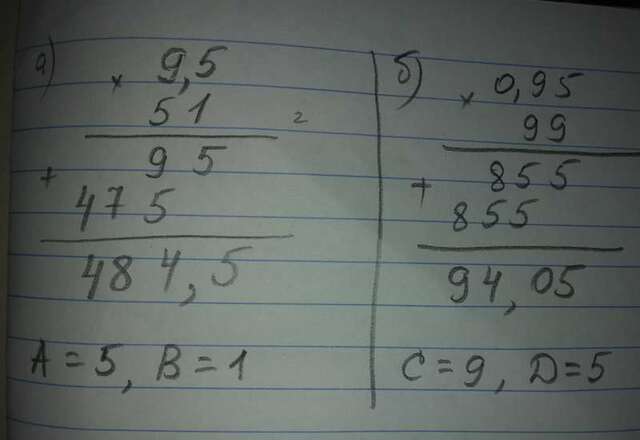 а)
× 9,5
51
+ 95
475
484,5
A = 5, B = 1
б)
× 0,95
99
+ 855
855
94,05
C = 9, D = 5